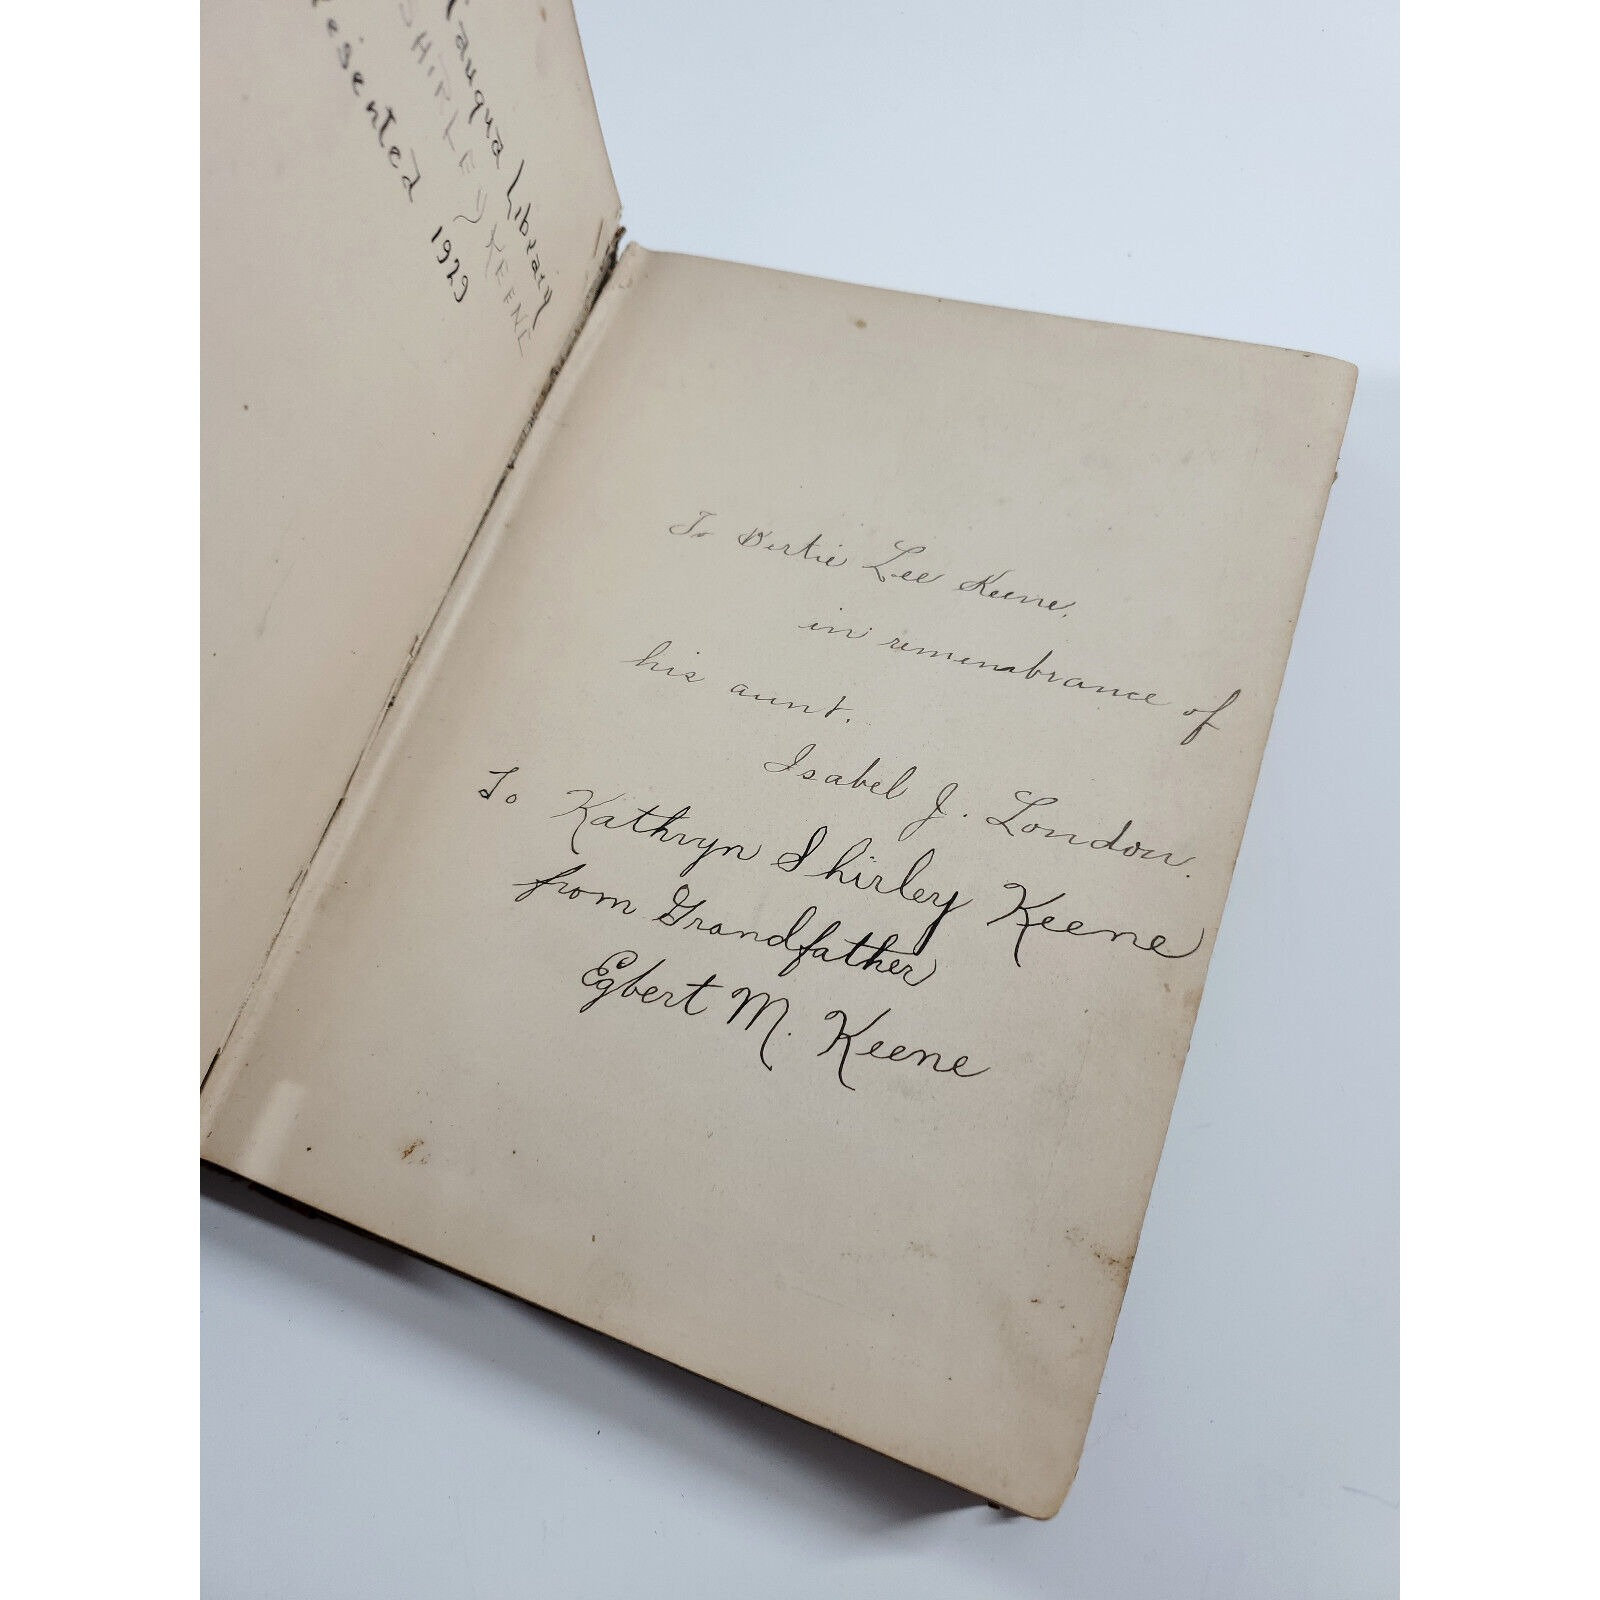 tauqua Library
SHIRLEY KEENE
resented 1929
To Bertie Lee Keene,
in remembrance of
his aunt.
Isabel J. London.
To Kathryn Shirley Keene
from Grandfather
Egbert M. Keene